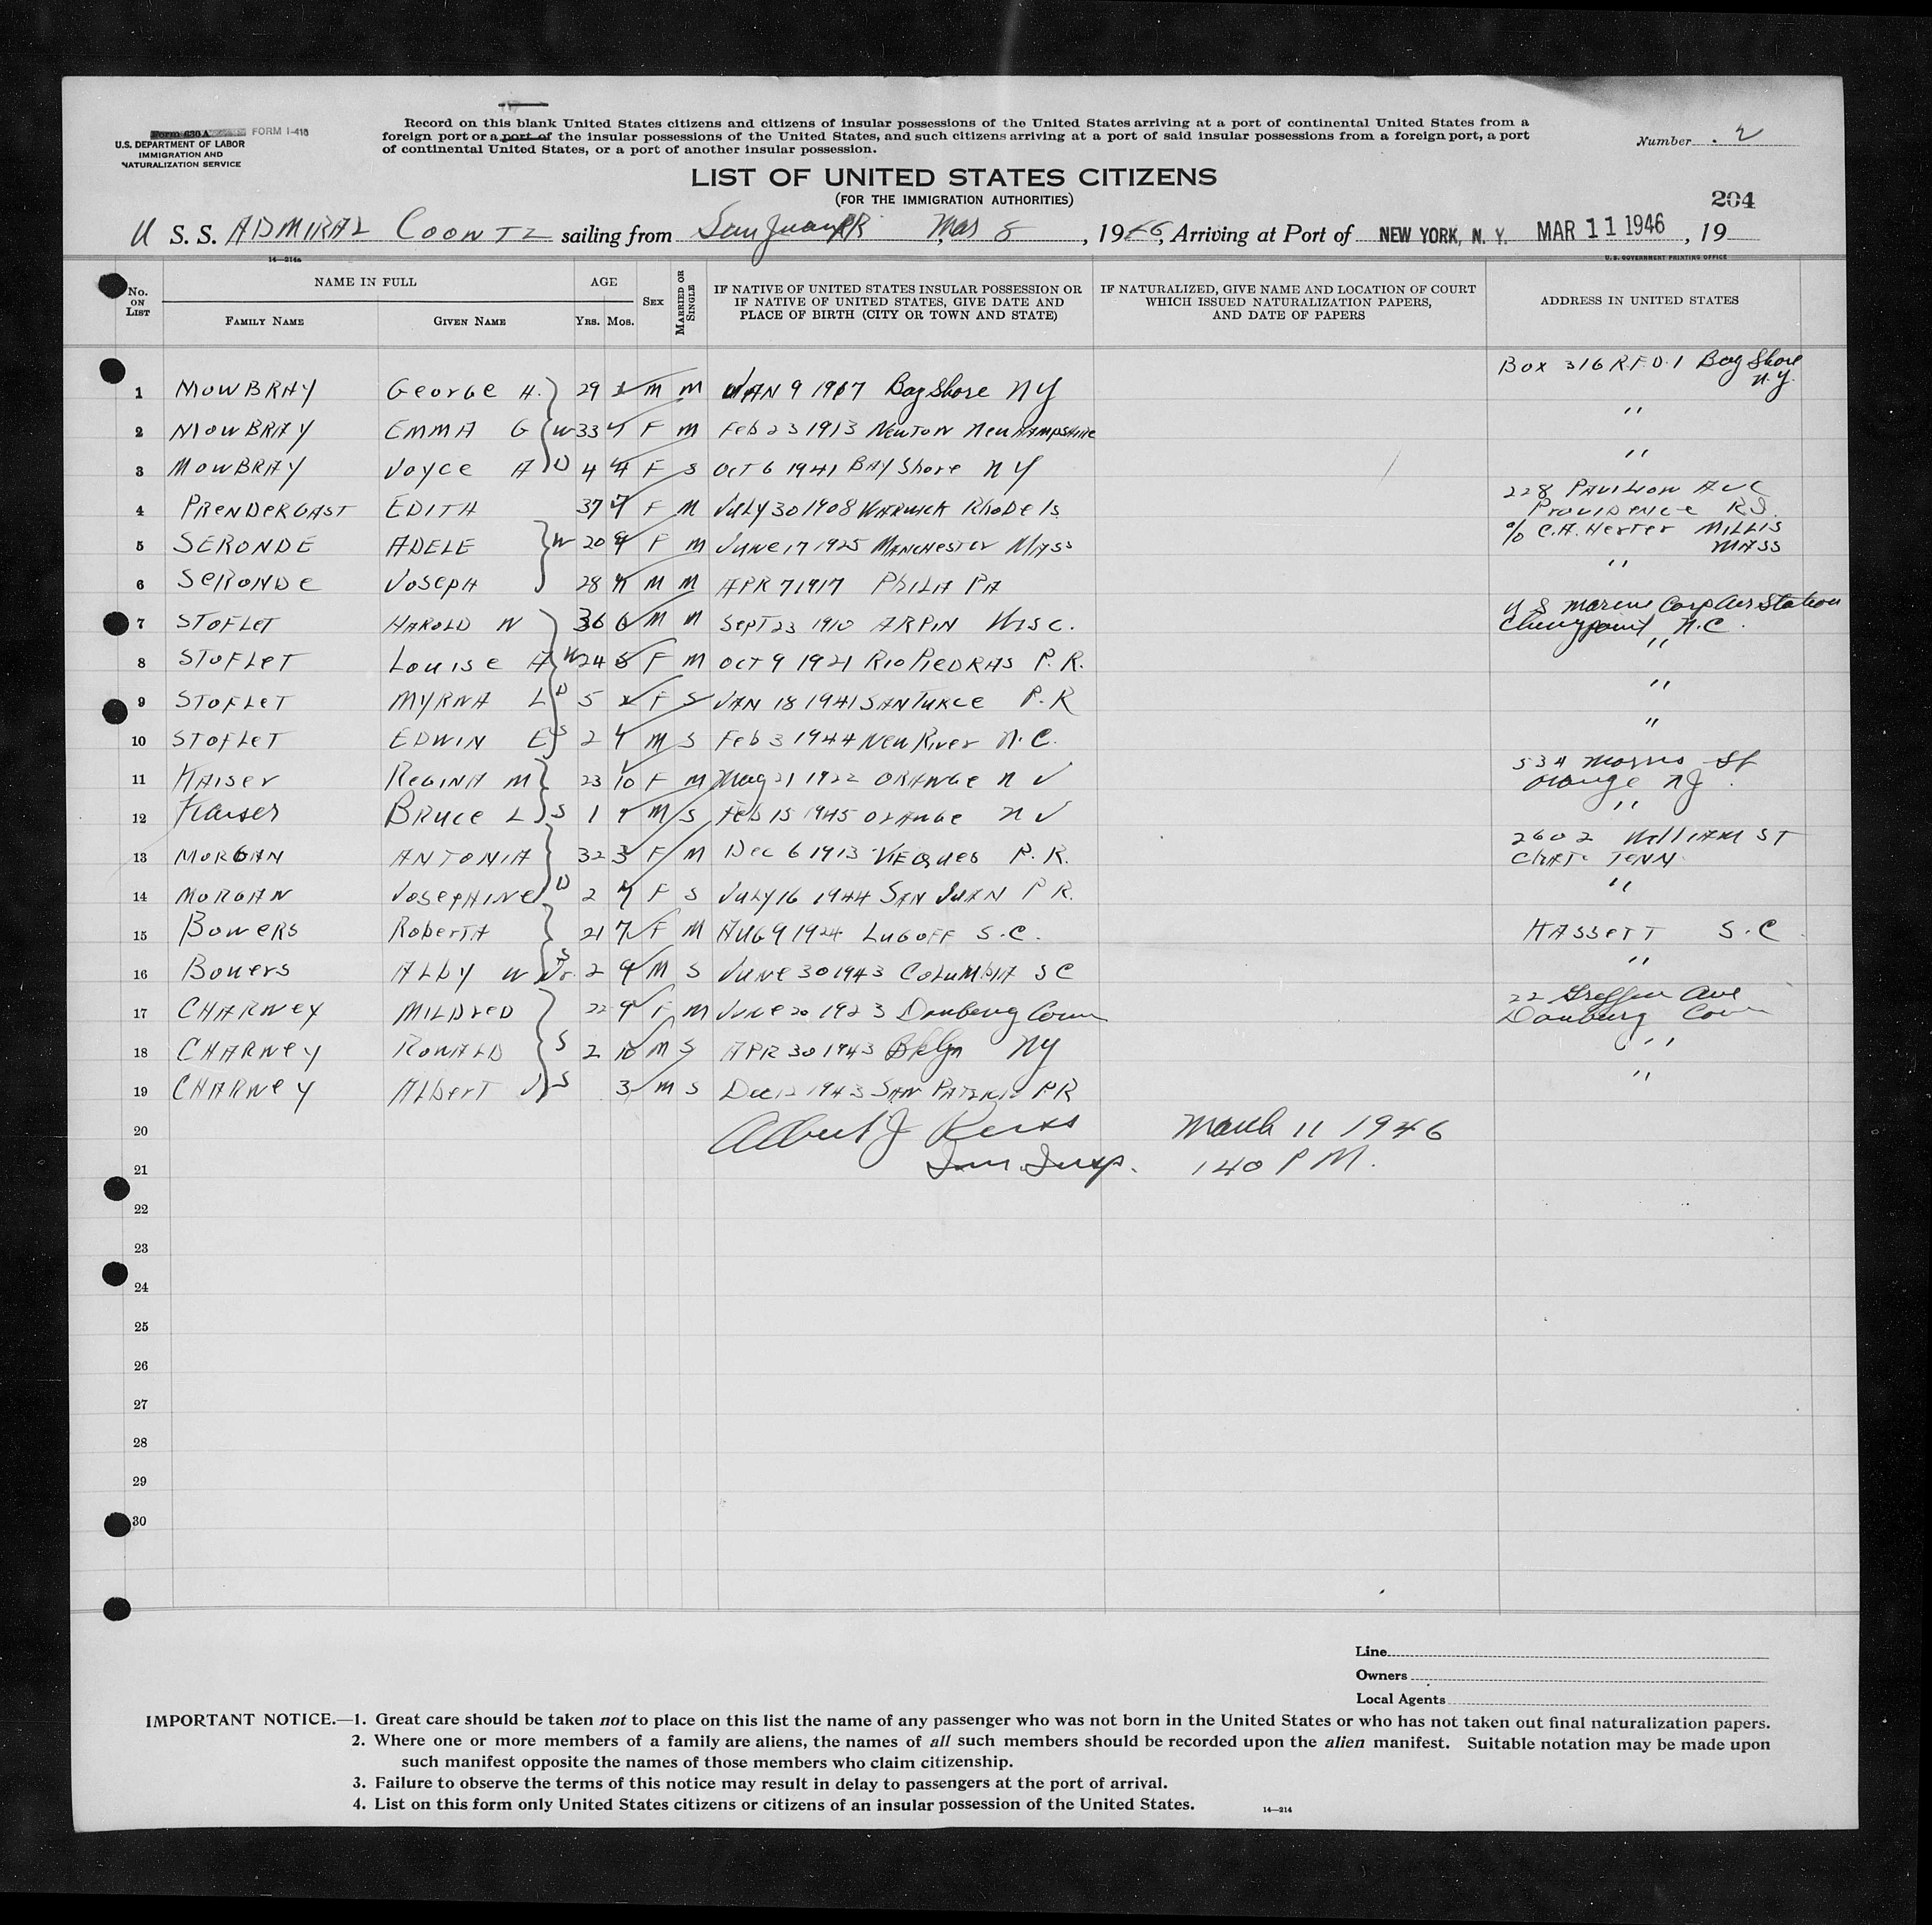 Form 630 A FORM I-418
U.S. DEPARTMENT OF LABOR
IMMIGRATION AND
NATURALIZATION SERVICE
Record on this blank United States citizens and citizens of insular possessions of the United States arriving at a port of continental United States from a
foreign port or a port of the insular possessions of the United States, and such citizens arriving at a port of said insular possessions from a foreign port, a port
of continental United States, or a port of another insular possession.
Number 2
LIST OF UNITED STATES CITIZENS
(FOR THE IMMIGRATION AUTHORITIES)
204
U S. S. ADMIRAL COONTZ sailing from San Juan PR Mar 8, 1946, Arriving at Port of NEW YORK, N. Y. MAR 11 1946, 19
14—214a U.S. GOVERNMENT PRINTING OFFICE
No. ON LIST
NAME IN FULL
FAMILY NAME GIVEN NAME
AGE
YRS. MOS.
SEX
MARRIED OR SINGLE
IF NATIVE OF UNITED STATES INSULAR POSSESSION OR
IF NATIVE OF UNITED STATES, GIVE DATE AND
PLACE OF BIRTH (CITY OR TOWN AND STATE)
IF NATURALIZED, GIVE NAME AND LOCATION OF COURT
WHICH ISSUED NATURALIZATION PAPERS,
AND DATE OF PAPERS
ADDRESS IN UNITED STATES
1 MOWBRAY George H. 29 M M JAN 9 1917 Bay Shore NY Box 316 R.F.D. 1 Bay Shore N.Y.
2 MOWBRAY EMMA G W 33 F M Feb 23 1913 NEWTON New HAMPSHIRE "
3 MOWBRAY Joyce A D 4 4 F S OCT 6 1941 BAY Shore NY "
4 PRENDERGAST EDITH 37 7 F M JULY 30 1908 WARWICK RhoDe Is 228 PAVILION AVE PROVIDENCE R.I.
5 SERONDE ADELE W 20 F M JUNE 17 1925 MANCHESTER MASS % C.A. Herter MILLIS MASS
6 SERONDE JOSEPH 28 M M APR 7 1917 PhILA PA "
7 STOFLET HAROLD N 36 6 M M SEPT 23 1910 ARPIN WISC. U S Marine Corp Air Station Cherry point N.C.
8 STOFLET LOUISE A W 24 F M OCT 9 1921 RIO PIEDRAS P.R. "
9 STOFLET MYRNA L D 5 F S JAN 18 1941 SANTURCE P.R "
10 STOFLET EDWIN E S 2 M S Feb 3 1944 New River N.C. "
11 KAISER REGINA M 23 10 F M May 21 1922 ORANGE N J 534 Morris St Orange NJ
12 Kaiser BRUCE L S 1 M S Feb 15 1945 ORANGE N J "
13 MORGAN ANTONIA 32 3 F M Dec 6 1913 VIEQUES P.R. 2602 WILLIAM ST CHAT. TENN
14 MORGAN JOSEPHINE D 2 7 F S JULY 16 1944 SAN JUAN P R. "
15 BOWERS ROBERTA 21 7 F M AUG 9 1924 LUGOFF S.C. KASSETT S.C
16 BOWERS ALBY W Jr. S 2 9 M S JUNE 30 1943 COLUMBIA SC "
17 CHARNEY MILDRED 22 9 F M JUNE 20 1923 Danbury Conn 22 Griffin Ave Danbury Conn
18 CHARNEY RONALD S 2 10 M S APR 30 1943 Bklyn NY "
19 CHARNEY ALBERT J S 3 M S Dec 12 1943 SAN PATRICIO PR "
20 Albert J March 11 1946
21 Imm. Insp. 1 40 P M.
22
23
24
25
26
27
28
29
30
Line
Owners
Local Agents
IMPORTANT NOTICE.—1. Great care should be taken not to place on this list the name of any passenger who was not born in the United States or who has not taken out final naturalization papers.
2. Where one or more members of a family are aliens, the names of all such members should be recorded upon the alien manifest. Suitable notation may be made upon
such manifest opposite the names of those members who claim citizenship.
3. Failure to observe the terms of this notice may result in delay to passengers at the port of arrival.
4. List on this form only United States citizens or citizens of an insular possession of the United States.
14—214